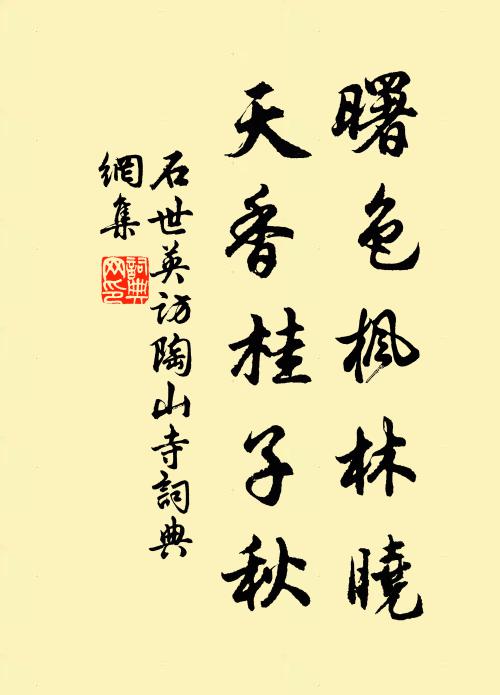 曙色楓林曉
天香桂子秋
石世英訪陶山寺詞典
網集
詞典網印